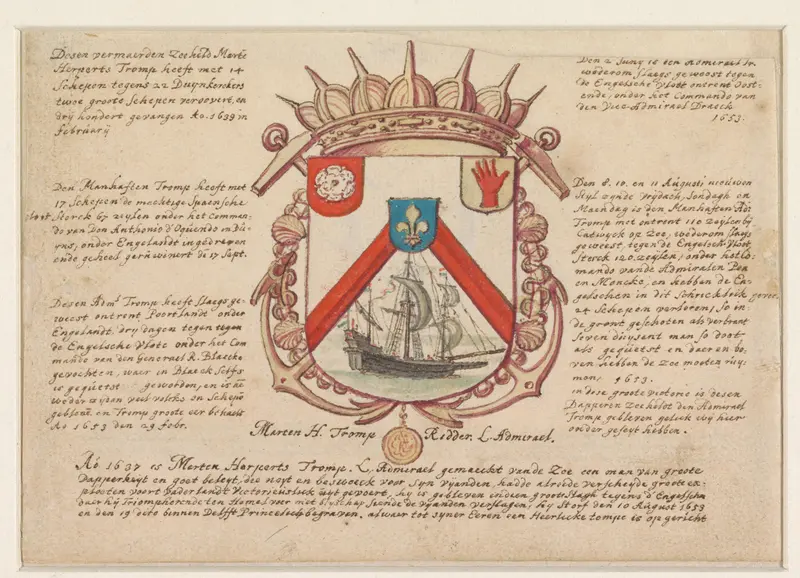 Desen vermaerden Zeeheld Marten
Herperts Tromp heeft met 14
Schepen tegens 22 Duynkerckers
twee groote schepen verovert, en
drij hondert gevangen Ao. 1639 in
februarij
Den Manhaften Tromp heeft met
17 Schepen de machtige Spaensche
Vloot Sterck 67 zeylen onder het Comman-
do van Don Anthonio d'Oquendo in Du-
yns, onder Engelandt ingedreven
ende geheel geruwineert de 17 Sept.
Desen Adml Tromp heeft slaegs ge-
weest ontrent Poortlandt onder
Engelandt, drij dagen tegen
de Engelsche Vlote onder het Com
mando van den generael R. Blaecke
gevochten, waer in Blaeck Selfs
is gequetst geworden, en is
weder zijden veel volcks en Schepen
gebleven en Tromp groote eer behaelt
Ao 1653 den 29 febr.
Den 2 Junij is den Admirael Tr.
wederom slaegs geweest tegen
de Engelsche Vloot ontrent Oost-
ende, onder het Commando van
den Vice-Admirael Draeck
1653.
Den 8. 10. en 11 Augusti nieuwen
Stijl zijnde Vrijdach, Sondagh en
Maendag is den Manhaften Ad
Tromp met ontrent 110 zeylen bij
Catwyck op Zee, wederom slags
geweest, tegen de Engelsch Vloot
Sterck 120 zeylen, onder het Co-
mando vande Admiralen Dea
en Moncke, en hebben de En-
gelschen in dit Schrickelick gevec.
24 Schepen verloren, so in
de gront geschoten als verbrant
Seven duysent man so doot
als gequetst en daer en bo-
ven hebben de Zee moeten ruy-
men, 1653.
in dese groote victorie is desen
Dapperen Zeeheldt den Admirael
Tromp gebleven gelick wij hier
onder geseyt hebben.
Marten H. Tromp Ridder. L. Admirael.
Ao 1637 is Merten Herperts Tromp. L. Admirael gemaeckt vande Zee een man van groote
dapperheyt en goet beleyt, die noyt en besweeck voor syn vijanden, hadde alreede verscheyde groote ex-
ploten voort Vaderlandt Victorieuslick uyt gevoert, hy is gebleven in een groote Slagh tegens d'Engelschen
daer hy Triompherende ten Hemel voer met blijschap siende de vijanden verslagen, hy Sterf den 10 August 1653
en den 19 dito binnen Delfft Princelick begraven, alwaer tot syner Eeren een Heerlicke tompe is op gericht